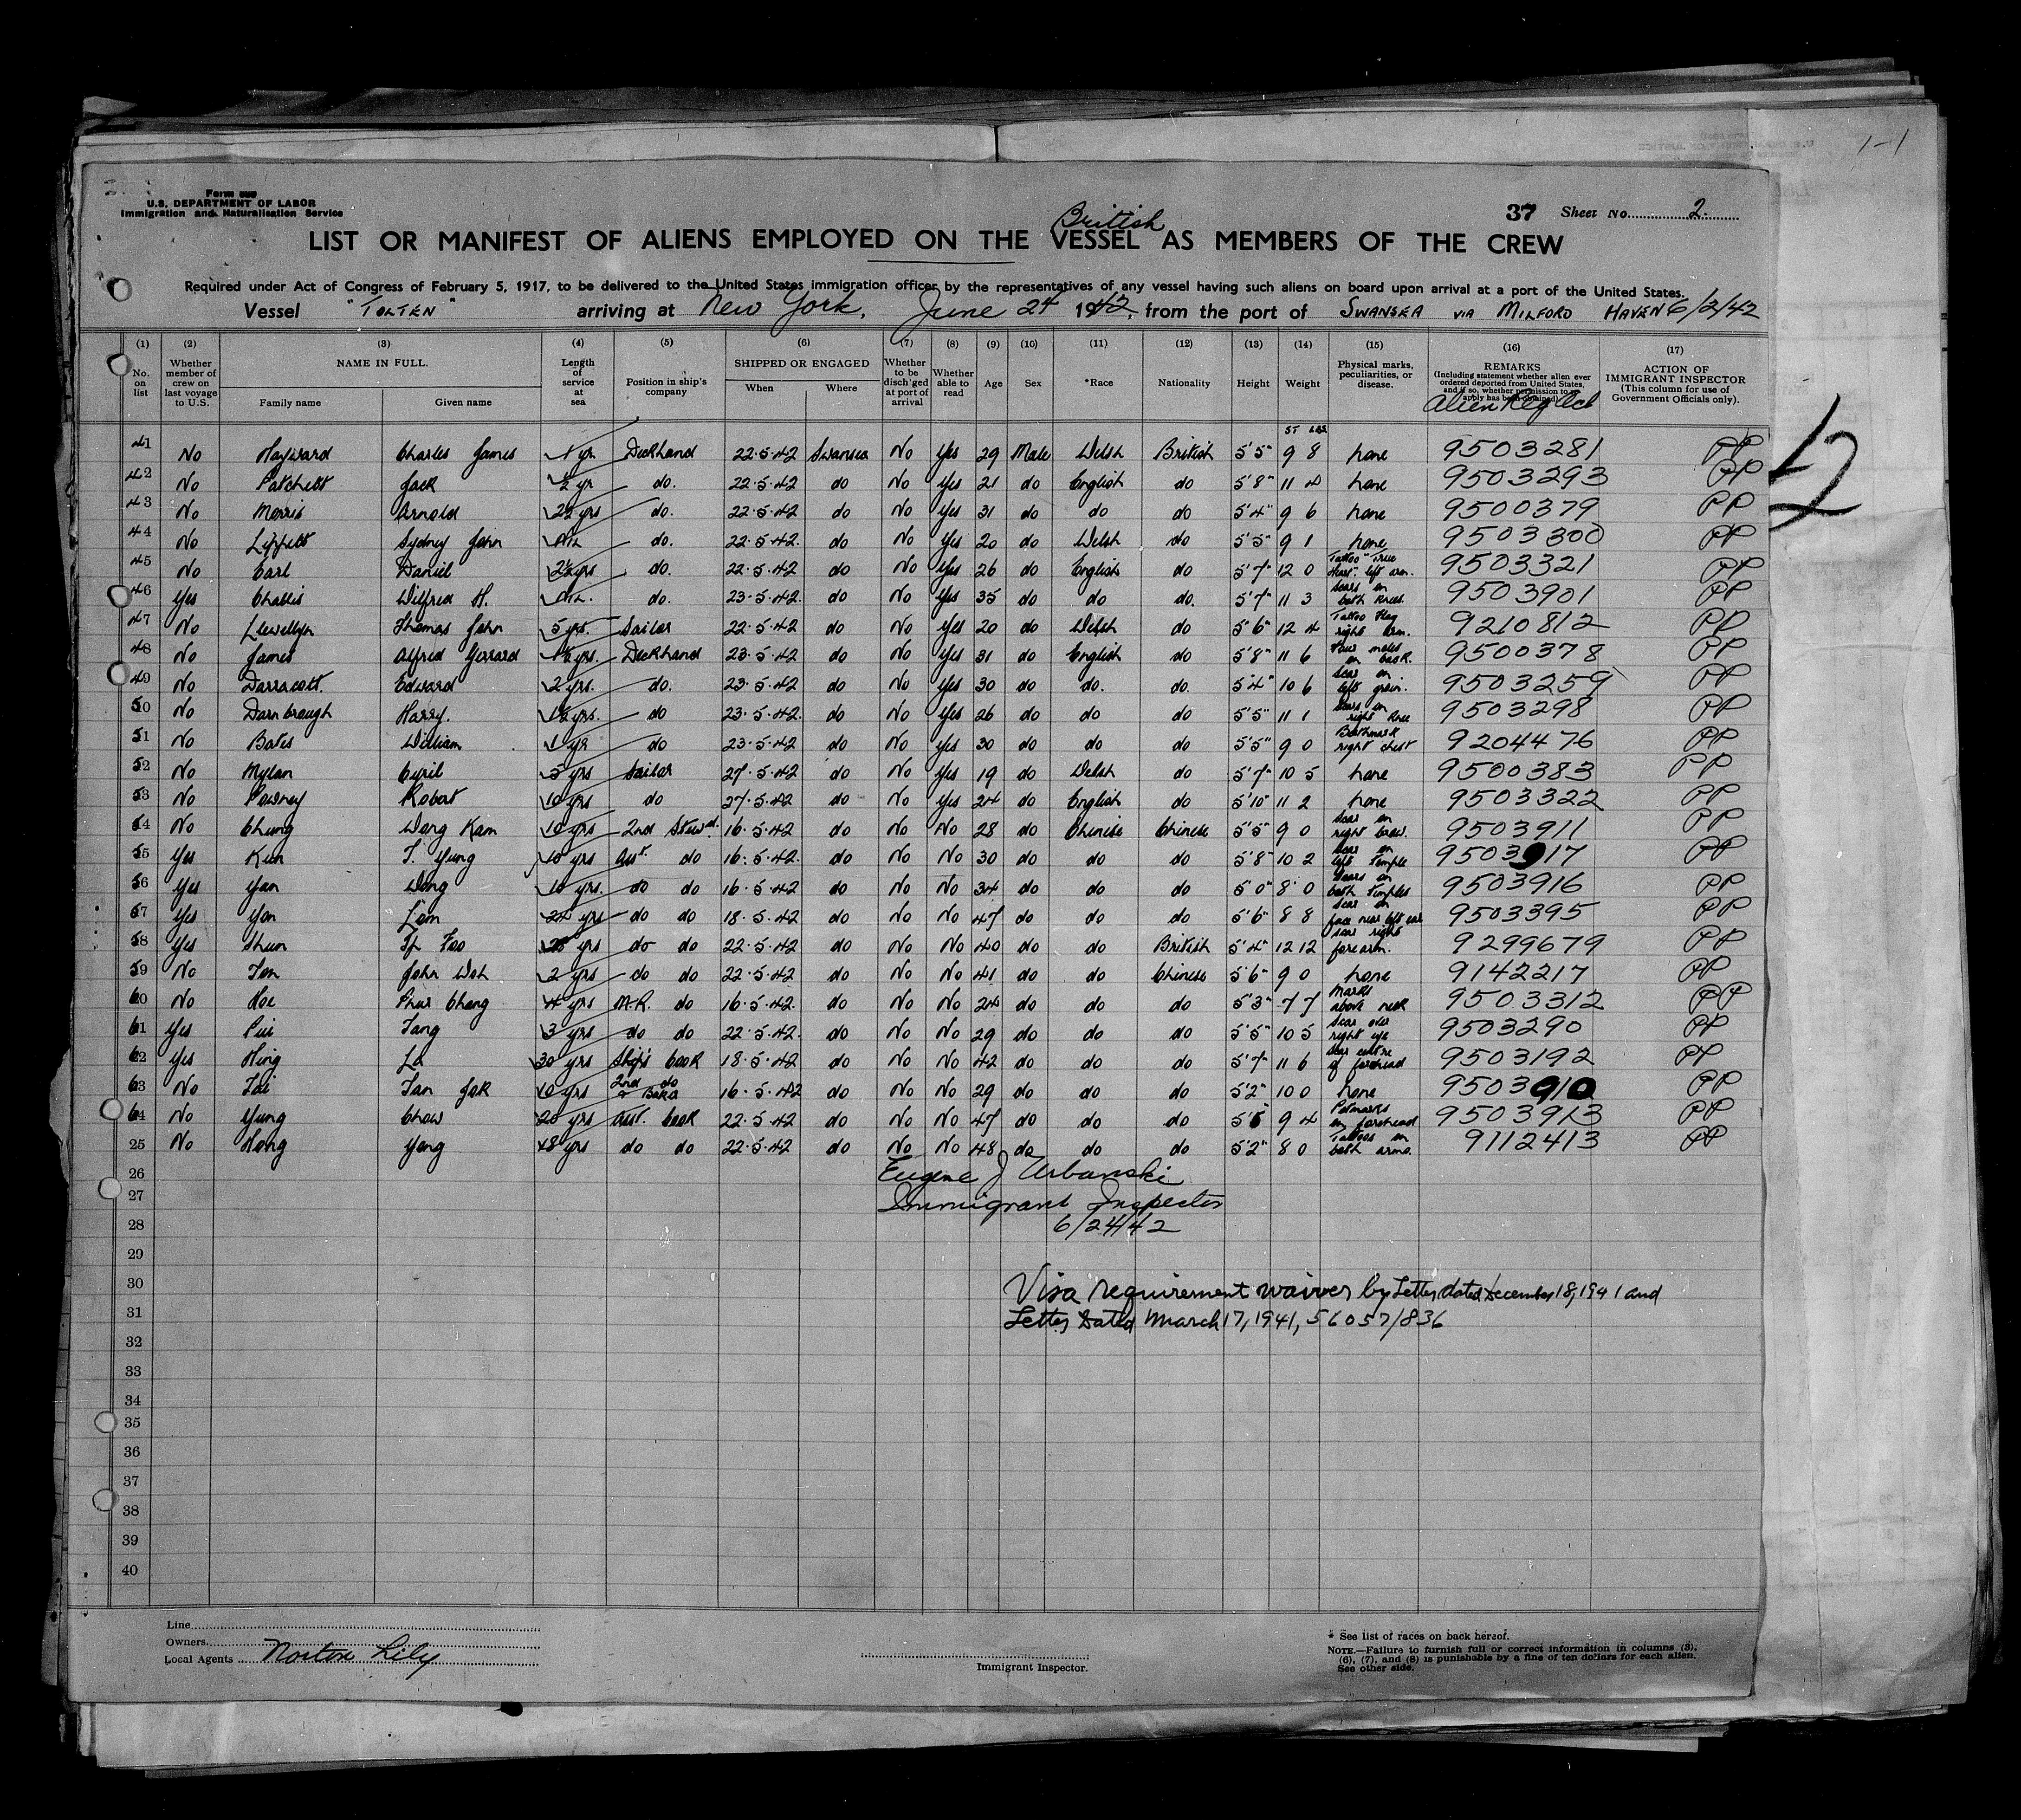 1-1
Form
U.S. DEPARTMENT OF LABOR
Immigration and Naturalisation Service
37 Sheet No. 2.
British
LIST OR MANIFEST OF ALIENS EMPLOYED ON THE VESSEL AS MEMBERS OF THE CREW
Required under Act of Congress of February 5, 1917, to be delivered to the United States immigration officer by the representatives of any vessel having such aliens on board upon arrival at a port of the United States.
Vessel "TOLTEN" arriving at New York, June 24 1942, from the port of SWANSEA VIA MILFORD HAVEN 6/2/42
(1) (2) (3) (4) (5) (6) (7) (8) (9) (10) (11) (12) (13) (14) (15) (16) (17)
No. on list
Whether member of crew on last voyage to U.S.
NAME IN FULL.
Family name Given name
Length of service at sea
Position in ship's company
SHIPPED OR ENGAGED
When Where
Whether to be disch'ged at port of arrival
Whether able to read
Age Sex *Race Nationality Height Weight
Physical marks, peculiarities, or disease.
REMARKS
(Including statement whether alien ever ordered deported from United States, and if so, whether permission to apply has been obtained)
Alien Reg Act
ACTION OF IMMIGRANT INSPECTOR
(This column for use of Government Officials only).
ST LBS
41 No Hayward Charles James 1 yr Deckhand 22.5.42 Swansea No Yes 29 Male Welsh British 5'5" 9 8 none 9503281 PP
42 No Patchett Jack ½ yr do. 22.5.42 do No Yes 21 do English do 5'8" 11 4 none 9503293 PP
43 No Morris Arnold 2½ yrs do. 22.5.42 do No Yes 31 do do do 5'4" 9 6 none 9500379 PP
44 No Lippett Sydney John do. 22.5.42. do No Yes 20 do Welsh do 5'5" 9 1 none 9503300 PP
45 No Earl Daniel 2½ yrs do. 22.5.42 do No Yes 26 do English do 5'7" 12 0 Tattoo "True Heart" left arm. 9503321 PP
46 Yes Challis Wilfred H. do. 23.5.42. do No Yes 35 do do do. 5'7" 11 3 Scars on both knees. 9503901 PP
47 No Llewellyn Thomas John 5 yrs. Sailor 22.5.42 do No Yes 20 do Welsh do 5'6" 12 4 Tattoo Flag right arm. 9210812 PP
48 No James Alfred Gerrard 1½ yrs. Deckhand 23.5.42 do No Yes 31 do English do 5'8" 11 6 Four moles on back. 9500378 PP
49 No Darracott. Edward 2 yrs. do. 23.5.42 do No Yes 30 do do. do. 5'4" 10 6 Scar on left groin. 9503259 PP
50 No Darnbrough Harry. 1½ yrs. do 23.5.42. do No Yes 26 do do do 5'5" 11 1 Scars on right knee 9503298 PP
51 No Bates William 1 yr do 23.5.42 do No Yes 30 do do do 5'5" 9 0 Birthmark right chest 9204476 PP
52 No Mylan Cyril 5 yrs Sailor 27.5.42 do No Yes 19 do Welsh do 5'7" 10 5 none 9500383 PP
53 No Powney Robert 10 yrs do 27.5.42 do No Yes 24 do English do 5'10" 11 2 none 9503322 PP
54 No Chung Wong Kam 10 yrs 2nd Stewd. 16.5.42 do No No 28 do Chinese Chinese 5'5" 9 0 Scar on right brow. 9503911 PP
55 Yes Kun T. Yung 10 yrs Asst. do 16.5.42. do No No 30 do do do 5'8" 10 2 Scar on left temple 9503917 PP
56 Yes Yan Wong 10 yrs. do do 16.5.42 do No No 34 do do do 5'0" 8 0 Scars on both temples 9503916 PP
57 Yes Yon Lam 24 yrs do do 18.5.42 do No No 47 do do do 5'6" 8 8 Scar on face near left ear 9503395 PP
58 Yes Shun yrs do do 22.5.42 do No No 40 do do British 5'4" 12 12 scar right forearm. 9299679 PP
59 No John Wah 2 yrs do do 22.5.42 do No No 41 do do Chinese 5'6" 9 0 none 9142217 PP
60 No Hoe Chang 4 yrs M.R. do 16.5.42. do No No 24 do do do 5'3" 7 7 Marks above neck 9503312 PP
61 Yes Pui Tang 3 yrs do do 22.5.42. do No No 29 do do do 5'5" 10 5 Scar over right eye 9503290 PP
62 Yes Hing 30 yrs Ship's Cook 18.5.42 do No No 42 do do do 5'7" 11 6 Scar centre of forehead 9503192 PP
63 No Tai Tan Jok 10 yrs 2nd do & Baker 16.5.42 do No No 29 do do do 5'2" 10 0 none 9503910 PP
64 No Yung Chow 20 yrs Asst. Cook 22.5.42 do No No 47 do do do 5'6 9 4 Pockmarks on forehead 9503913 PP
25 No Hong Yong 8 yrs do do 22.5.42 do No No 48 do do do 5'2" 8 0 Tattoos on both arms. 9112413 PP
26 Eugene J Urbanski
27 Immigrant Inspector
28 6/24/42
29
30 Visa requirement waiver by Letter dated December 18, 1941 and
31 Letter Dated March 17, 1941, 56057/836
32
33
34
35
36
37
38
39
40
Line
Owners
Local Agents Norton Lily
Immigrant Inspector.
* See list of races on back hereof.
NOTE.—Failure to furnish full or correct information in columns (3), (6), (7), and (8) is punishable by a fine of ten dollars for each alien. See other side.